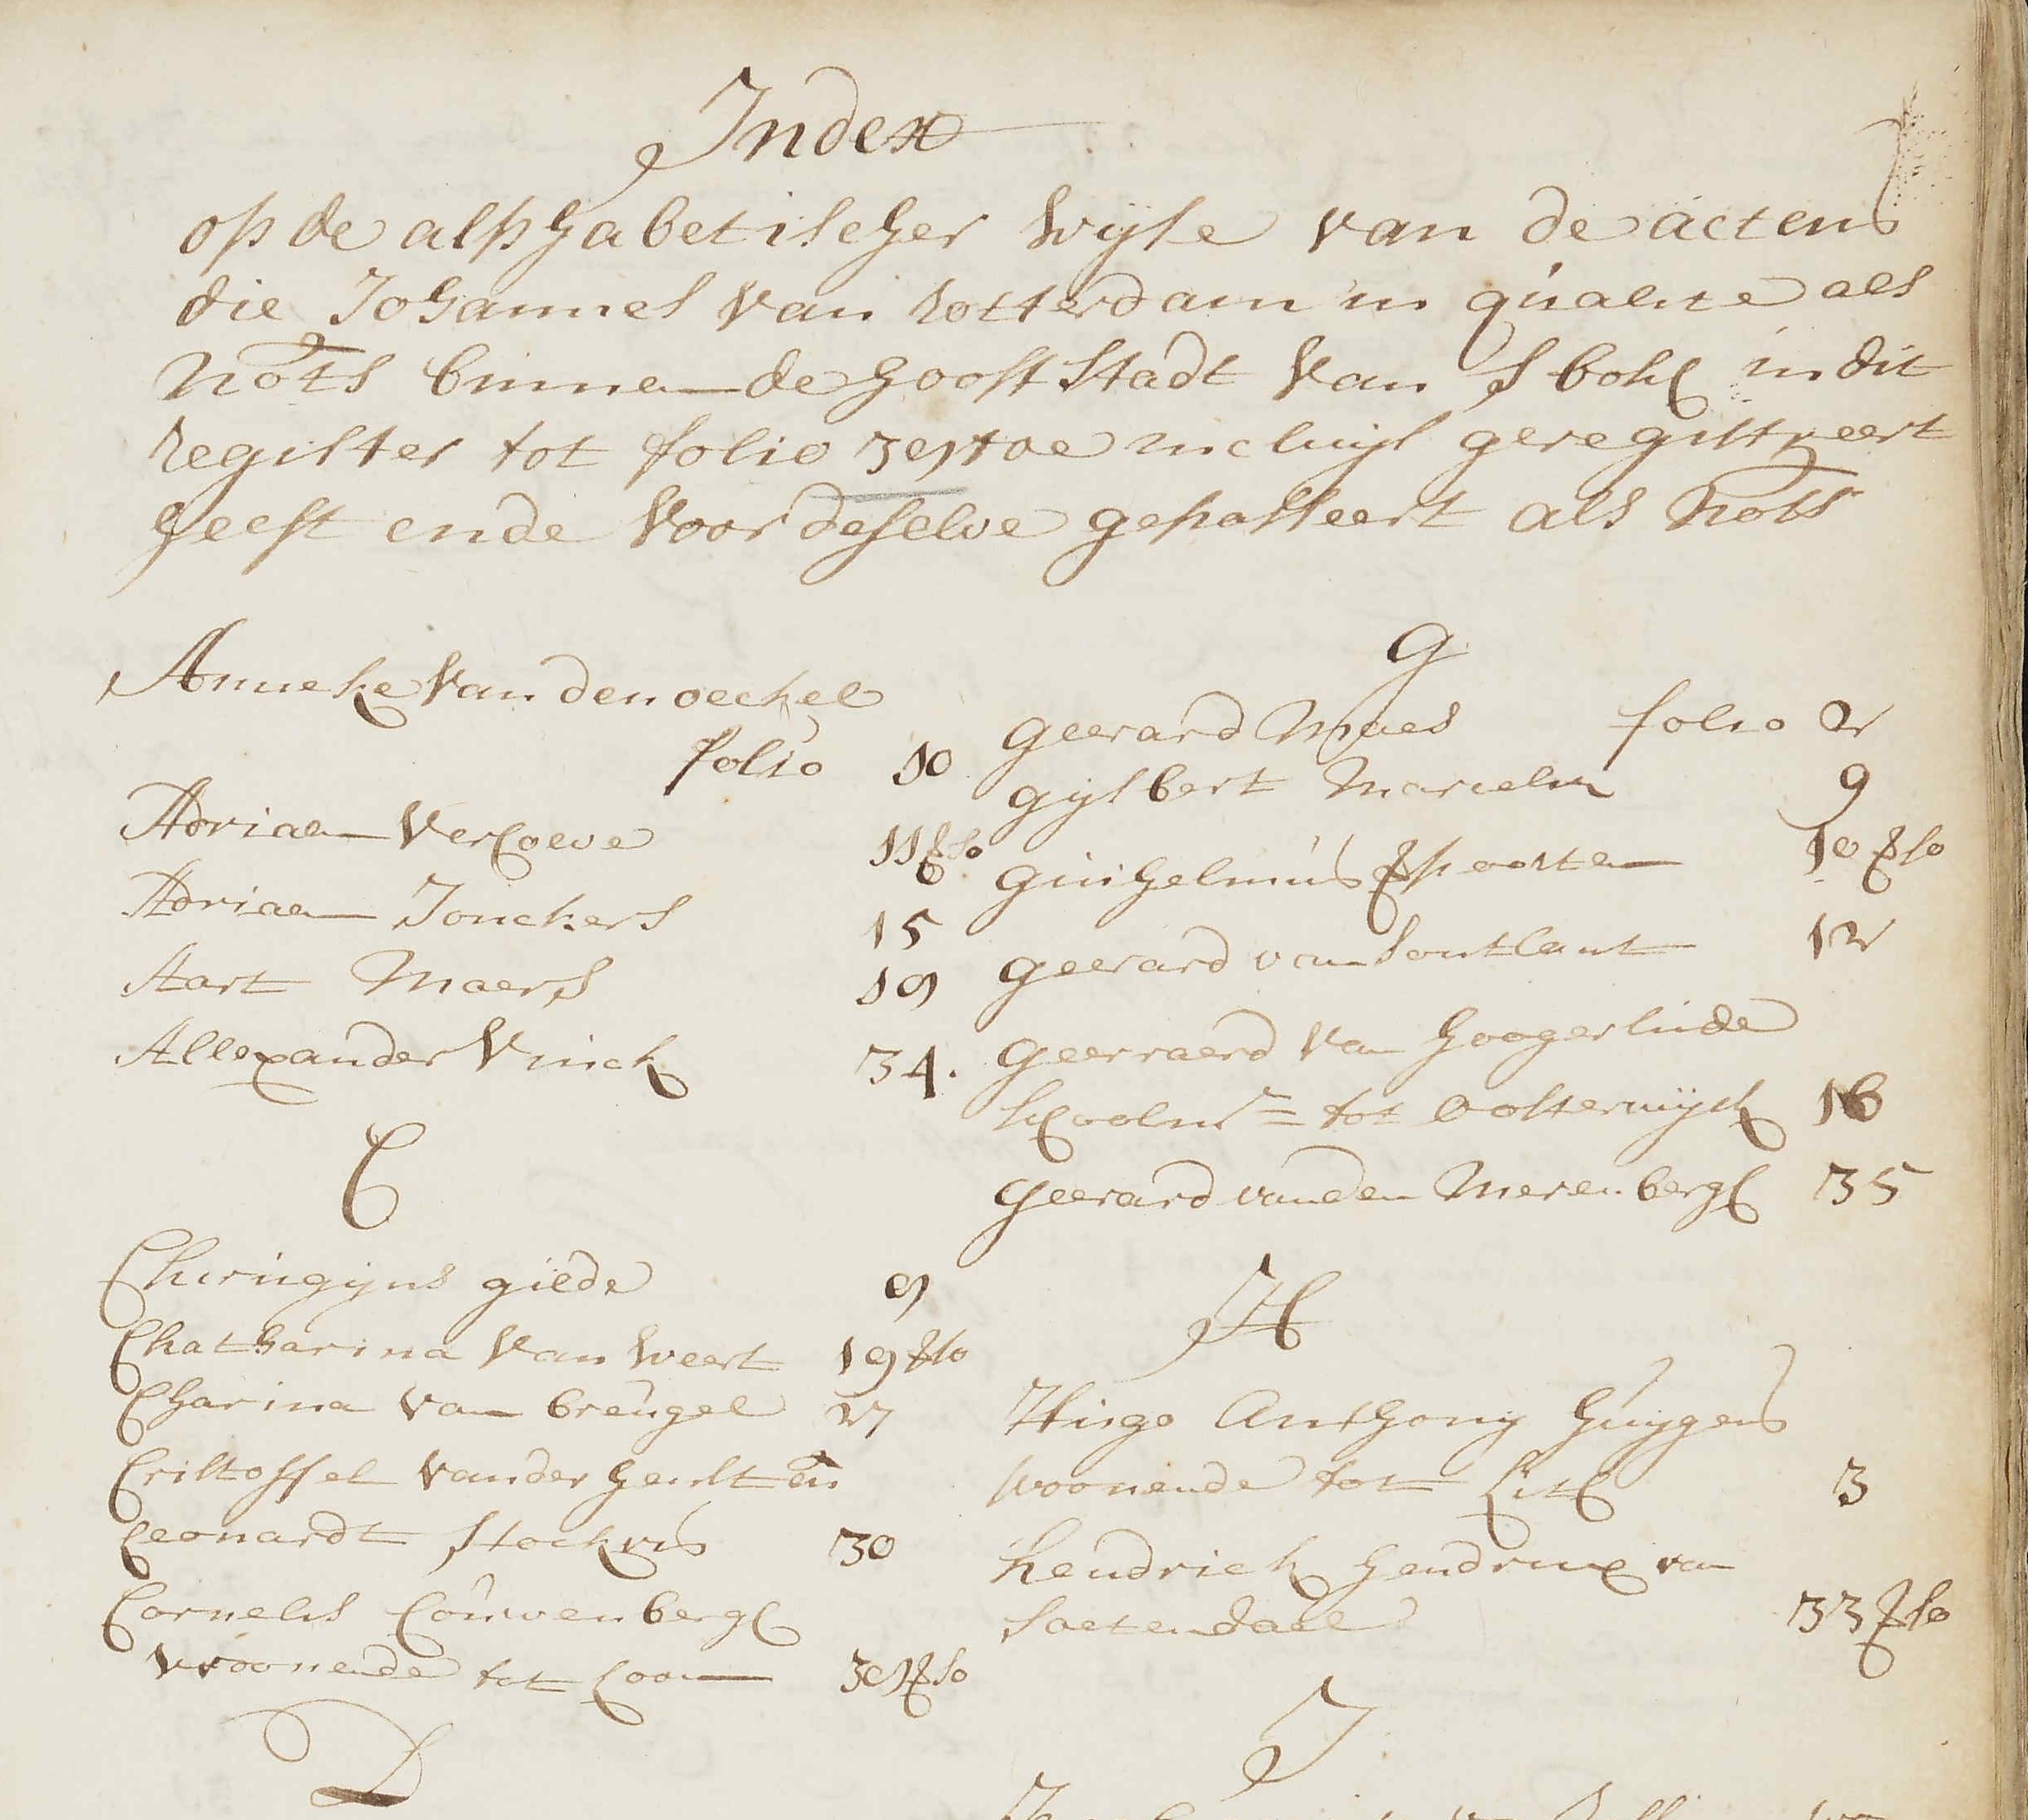 Index
op de alphabetischer wijse van de actens
die Johannes van rotterdam in qualite als
nots binnen de hooft stadt van s bosch in dit
register tot folio 39 toe incluijs geregistreert
heeft ende voor deselve gepasseert als nots
Anneke van den oeckel
folio 10
Adriaen Verhoeve 11 vso
Adriaen Jonckers 15
Aart Maers 19
Allexander Vinck 34.
C
Chirugijns gilde 9
Chatharina van weert 19 vso
Charina van breugel 27
Cristoffel vander henst en
Leonardt Stockvis 30
Cornelis Couwenbergh
woonende tot Loon 39 vso
D
G
geerard Maes folio 2
gijsbert Marcelis 9
guihelmus 10 vso
geerard van Soutlant 12
geerraerd van hoogerlinde
schoolmr tot Oosterwijck 16
geerard vanden Merenbergh 35
H
Hugo Anthony huijgens
woonende tot Lith 3
hendrick hendricx van
Soetendael 33 vso
J